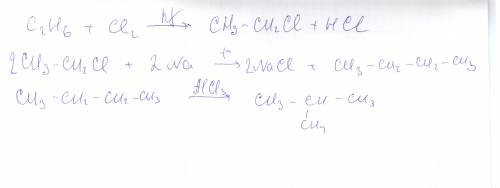 C2H6 + Cl2 —hν→ CH3 - CH2Cl + HCl
2CH3 - CH2Cl + 2Na —t→ 2NaCl + CH3 - CH2 - CH2 - CH3
CH3 - CH2 - CH2 - CH3 —AlCl3→ CH3 - CH - CH3
CH3